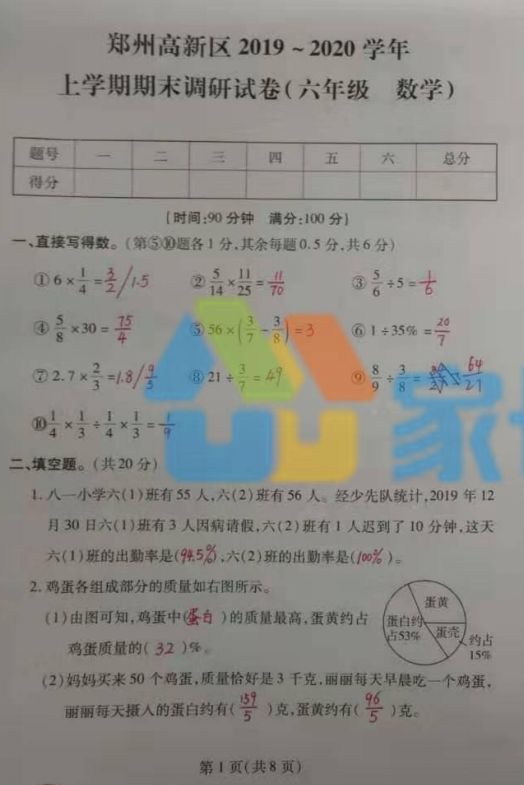 郑州高新区 2019~2020 学年
上学期期末调研试卷(六年级 数学)
题号 一 二 三 四 五 六 总分
得分
(时间:90 分钟 满分:100 分)
一、直接写得数。(第⑤⑩题各 1 分,其余每题 0.5 分,共 6 分)
①6×1/4=3/2/1.5 ②5/14×11/25=11/70 ③5/6÷5=1/6
④5/8×30=75/4 ⑤56×(3/7-3/8)=3 ⑥1÷35%=20/7
⑦2.7×2/3=1.8/9/5 ⑧21÷3/7=49 ⑨8/9÷3/8=64/27
⑩1/4×1/3÷1/4×1/3=1/9
二、填空题。(共 20 分)
1. 八一小学六(1)班有 55 人,六(2)班有 56 人。经少先队统计,2019 年 12
月 30 日六(1)班有 3 人因病请假,六(2)班有 1 人迟到了 10 分钟,这天
六(1)班的出勤率是(94.5%),六(2)班的出勤率是(100%)。
2. 鸡蛋各组成部分的质量如右图所示。
(1)由图可知,鸡蛋中(蛋白)的质量最高,蛋黄约占
鸡蛋质量的(32)%。
蛋黄
蛋白约
占53%
蛋壳
约占
15%
(2)妈妈买来 50 个鸡蛋,质量恰好是 3 千克,丽丽每天早晨吃一个鸡蛋,
丽丽每天摄人的蛋白约有(159/5)克,蛋黄约有(96/5)克。
第 1 页(共 8 页)